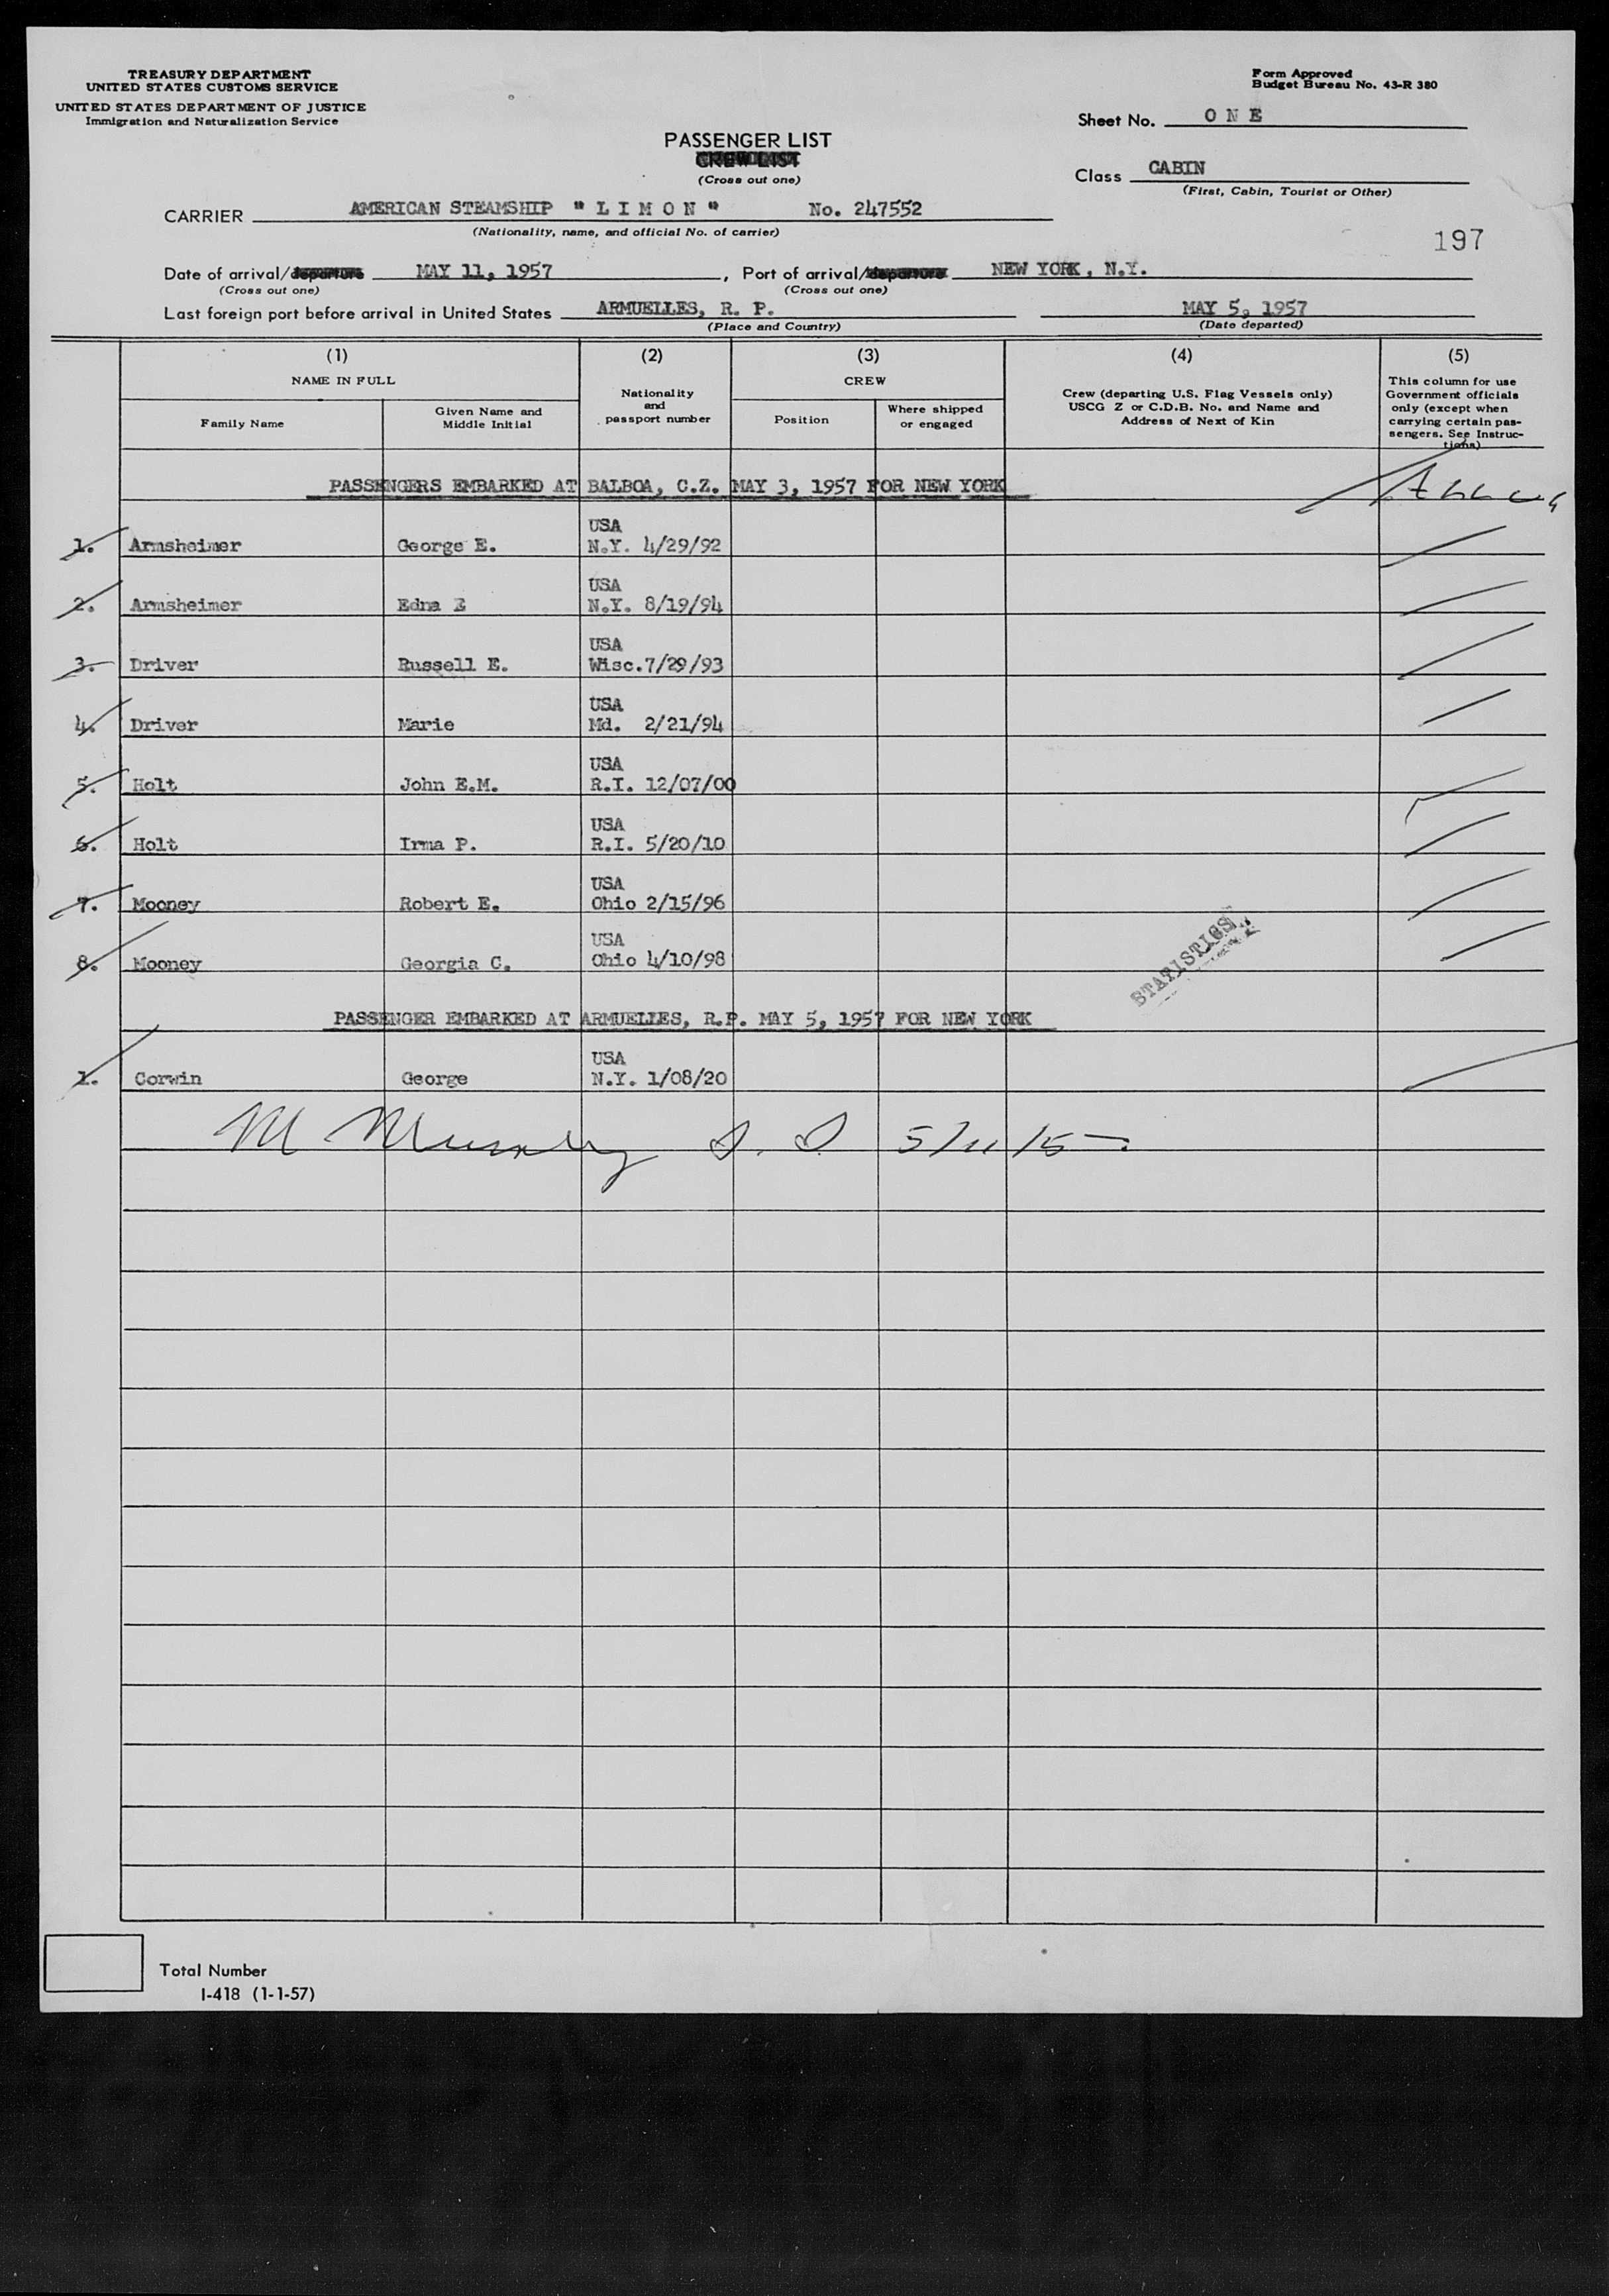 TREASURY DEPARTMENT
UNITED STATES CUSTOMS SERVICE
UNITED STATES DEPARTMENT OF JUSTICE
Immigration and Naturalization Service
Form Approved
Budget Bureau No. 43-R 380
Sheet No. O N E
PASSENGER LIST
CREW LIST
(Cross out one)
Class CABIN
(First, Cabin, Tourist or Other)
CARRIER AMERICAN STEAMSHIP " L I M O N " No. 247552
(Nationality, name, and official No. of carrier)
197
Date of arrival/departure MAY 11, 1957, Port of arrival/departure NEW YORK, N.Y.
(Cross out one) (Cross out one)
Last foreign port before arrival in United States ARMUELLES, R. P. MAY 5, 1957
(Place and Country) (Date departed)
(1) (2) (3) (4) (5)
NAME IN FULL
Family Name
Given Name and
Middle Initial
Nationality
and
passport number
CREW
Position
Where shipped
or engaged
Crew (departing U.S. Flag Vessels only)
USCG Z or C.D.B. No. and Name and
Address of Next of Kin
This column for use
Government officials
only (except when
carrying certain pas-
sengers. See Instruc-
tions)
PASSENGERS EMBARKED AT BALBOA, C.Z. MAY 3, 1957 FOR NEW YORK
USA
1. Armsheimer George E. N.Y. 4/29/92
USA
2. Armsheimer Edna E N.Y. 8/19/94
USA
3. Driver Russell E. Wisc.7/29/93
USA
4. Driver Marie Md. 2/21/94
USA
5. Holt John E.M. R.I. 12/07/00
USA
6. Holt Irma P. R.I. 5/20/10
USA
7. Mooney Robert E. Ohio 2/15/96
USA
8. Mooney Georgia C. Ohio 4/10/98
STATISTICS
PASSENGER EMBARKED AT ARMUELLES, R.P. MAY 5, 1957 FOR NEW YORK
USA
1. Corwin George N.Y. 1/08/20
M Murphy
Total Number
I-418 (1-1-57)